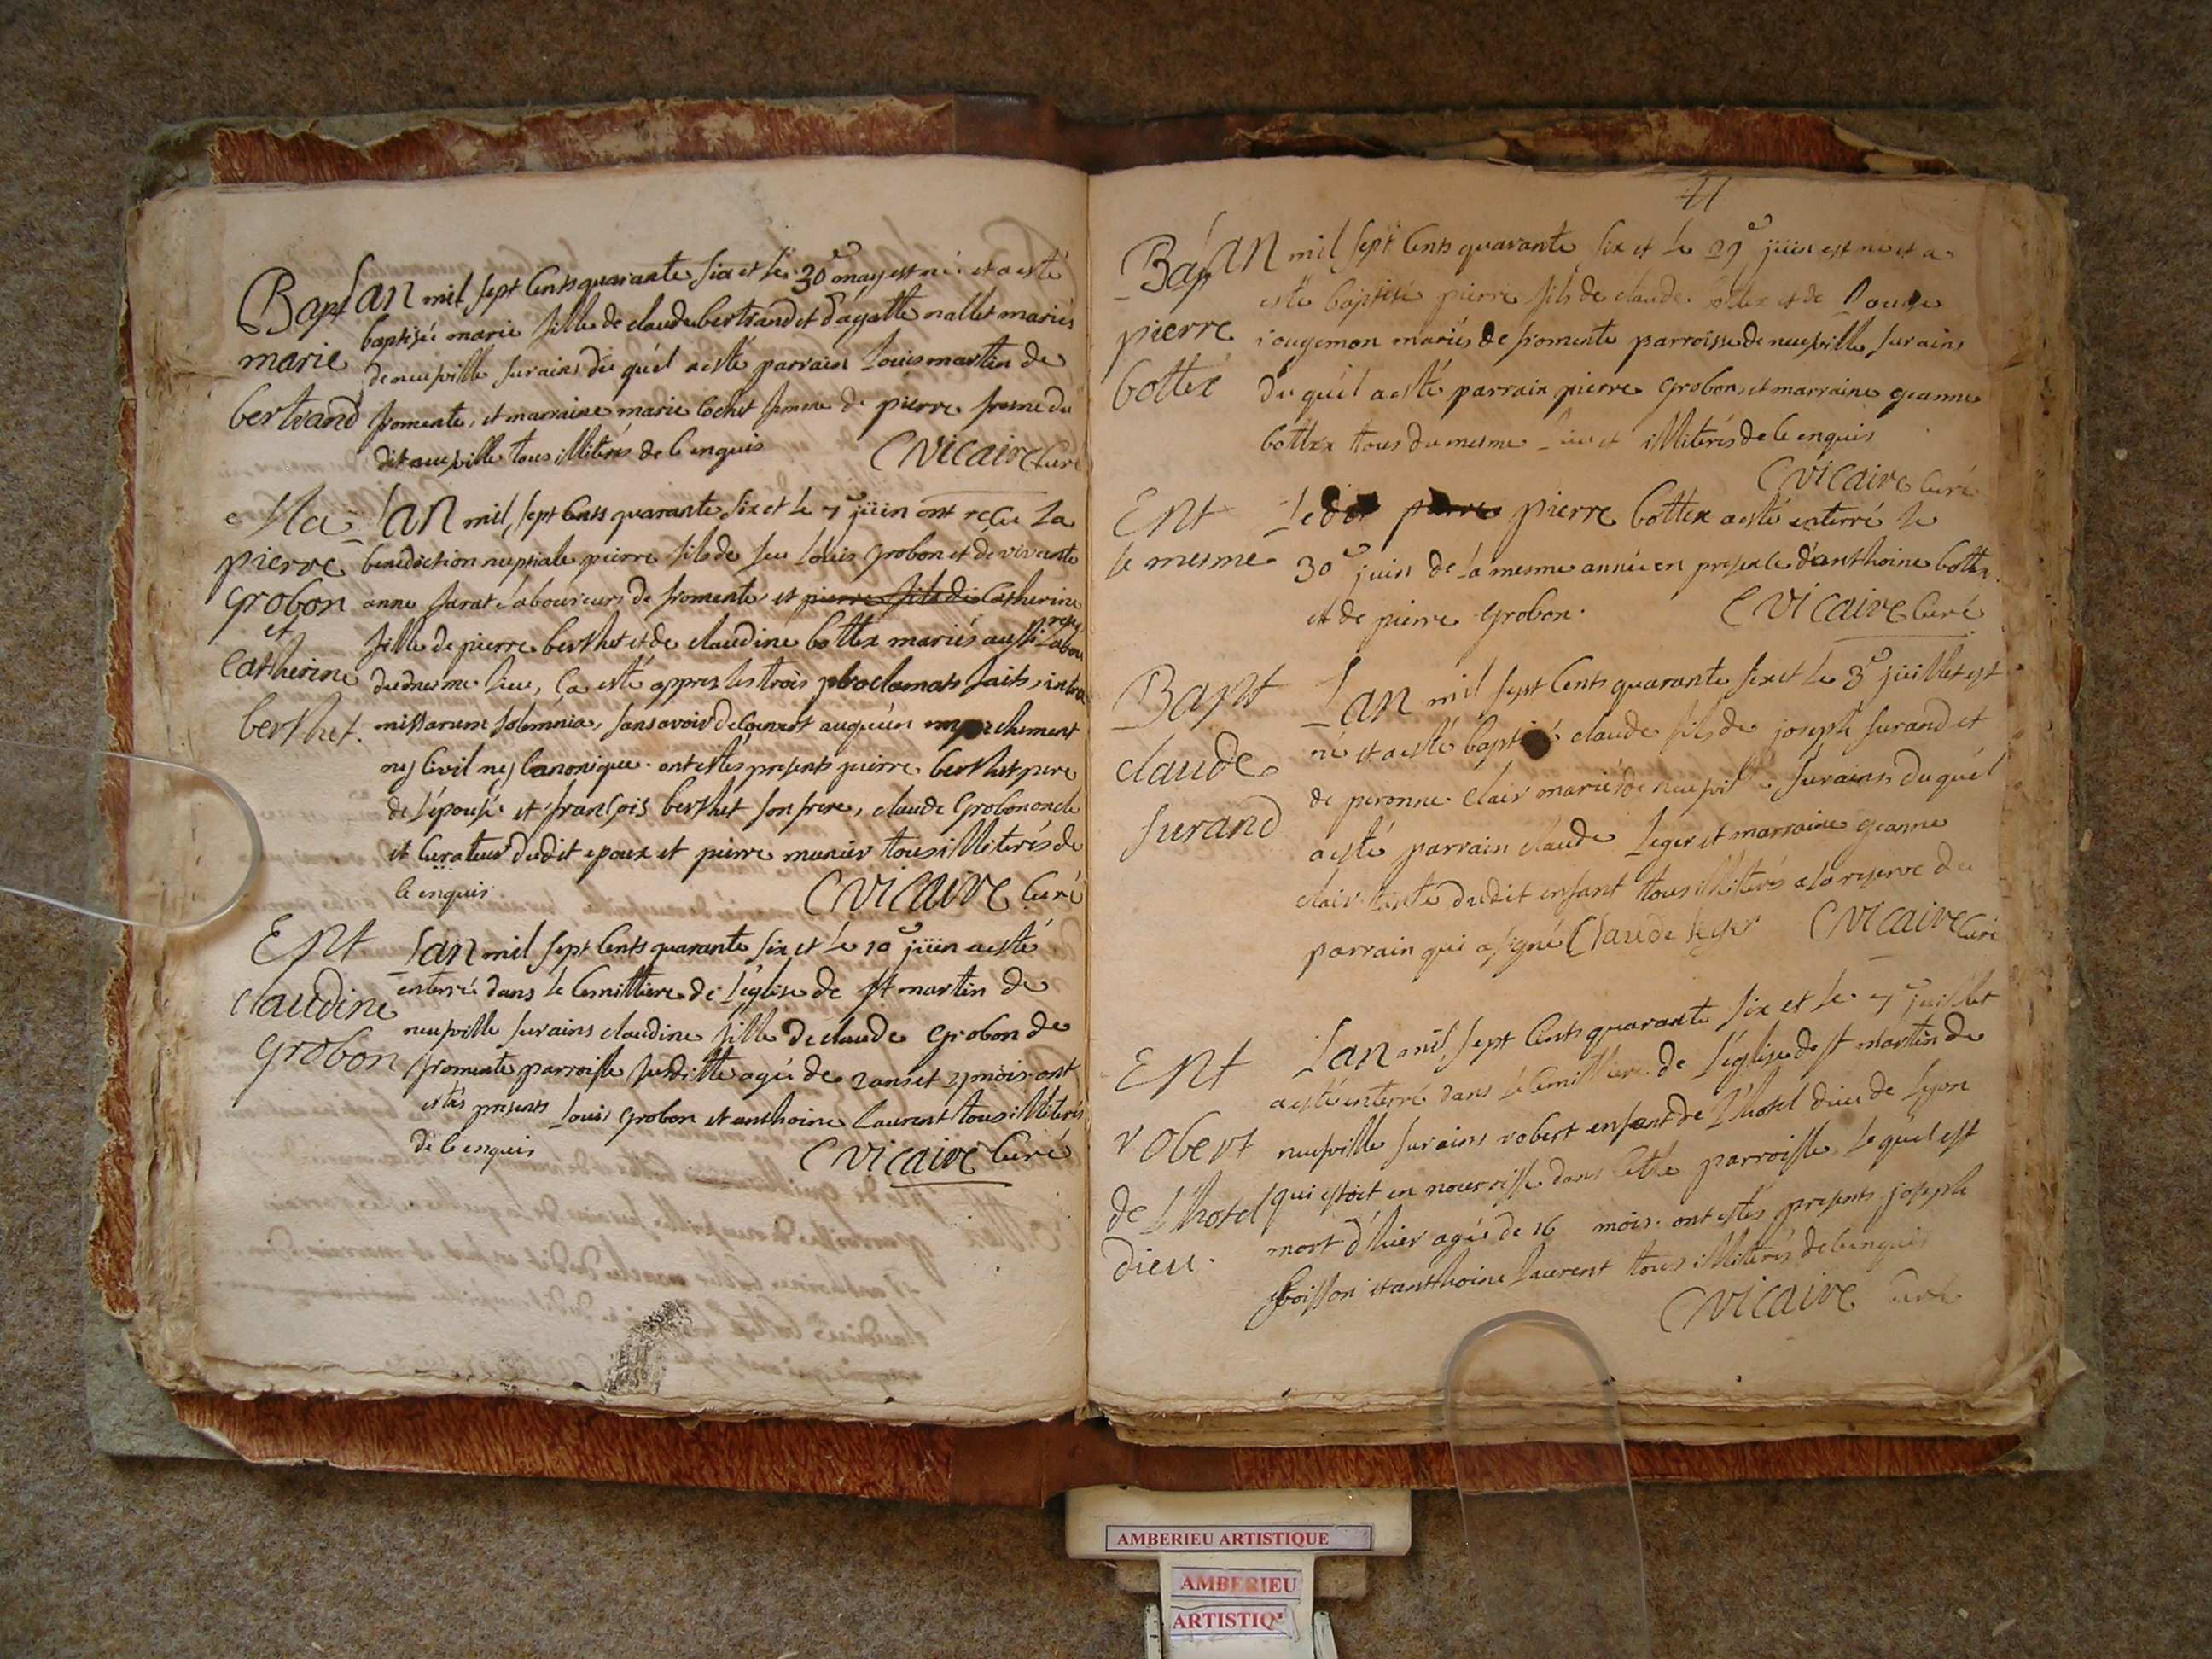 Bapt
marie
bertrand
Lan mil sept cents quarante six et le 30e may est né et a esté
baptisée marie fille de claude bertrand et d'agatte nallet mariés
de neufville sur ains du quel a esté parrain Louis martin de
fromente, et marraine marie cochet femme de pierre fresne du
dit neufville tous illiterés de ce enquis CVicaire Curé
Ma
pierre
grobon
et
Catherine
berthet.
Lan mil sept cents quarante six et le 7e juin ont reçu La
benediction nuptiale pierre fils de feu Louis grobon et de vivante
anne Laboureurs de fromente et pierre fils de Catherine
fille de pierre berthet et de claudine bottex mariés aussi Labou
reurs
du mesme lieu, ça esté appres les trois proclamats faits intra
missarum solemnia, sans avoir decouvert auqu'un empechement
ney Civil ney Canonique. ont estés presents pierre berthet pere
de L'épouse et françois berthet son frere, claude Grobon oncle
et Curateur dudit epoux et pierre munier tous illiterés de
ce enquis CVicaire Curé
Ent
claudine
grobon
Lan mil sept Cents quarante six et le 10e juin a esté
enterrée dans le Cemittiere de L'église de st martin de
neufville sur ains claudine fille de claude Grobon de
fromente parroisse susditte agée de 2 ans et mois ont
estés presents Louis grobon et anthoine Laurent tous illiterés
de ce enquis CVicaire Curé
Bap
pierre
bottex
Lan mil sept Cents quarante six et le 29e juin est né et a
esté baptisé pierre fils de claude bottex et de
iougemon mariés de fromente parroisse de neufville sur ains
du quel a esté parrain pierre grobon et marraine geanne
bottex tous du mesme lieu et illiterés de ce enquis
CVicaire Curé
Ent
le mesme
Ledit pierre pierre bottex a esté enterré le
30e juin de la mesme année en presence d'anthoine bottex
et de pierre grobon. CVicaire Curé
Bapt
claude
Lan mil sept Cents quarante six et le 3e juillet est
né et a esté baptisé claude fils de joseph et
de peronne Clair mariés de neufville sur ains du quel
a esté parrain claude Leger et marraine geanne
clair tante dudit enfant tous illiterés a la reserve du
parrain qui a signé Claude Leger CVicaire Curé
Ent
robert
de L'hotel
dieu.
Lan mil sept Cents quarante six et le 7e juillet
a esté enterré dans le Cemittiere de L'église de st martin de
neufville sur ains robert enfant de L'hotel dieu de Lyon
qui estoit en nourrisse dans Cette parroisse, Le quel est
mort d'hier agée de 16 mois. ont estés presents joseph
et anthoine Laurent tous illiterés de ce enquis
CVicaire Curé
AMBERIEU ARTISTIQUE
AMBERIEU
ARTISTIQ